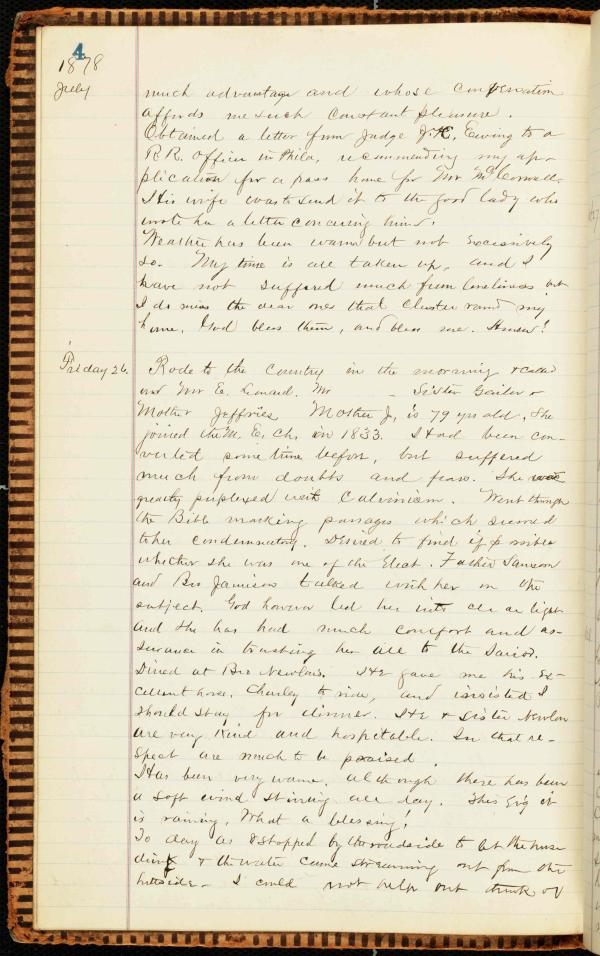 4
1878
July
much advantage and whose conversation
affords me such constant pleasure.
Obtained a letter from Judge J.K. Ewing to a
R.R. Officer in Phila, recommending my ap-
plication for a pass home for Mr McConnell.
His wife was to send it to the good lady who
wrote her a letter concerning him.
Weather has been warm but not excessively
so. My time is all taken up, and I
have not suffered much from loneliness but
I do miss the dear ones that cluster round my
home. God bless them, and bless me. Amen!
Friday 26. Rode to the country in the morning & called
on Mr E. Leonard. Mr - Sister Gailer &
Mother Jeffries Mother J, is 79 yrs old, She
joined the M. E. Ch. in 1833. Had been con-
verted some time before, but suffered
much from doubts and fears. She was
greatly perplexed with Calvinism. Went through
the Bible marking passages which seemed
to her condemnatory. Desired to find if possible
whether she was one of the Elect. Father Sansom
and Bro Jamison talked with her on the
subject. God however led her into clear light
and she has had much comfort and as-
surance in trusting her all to the Savior.
Dined at Bro Newlons. He gave me his ex-
cellent horse, Charley to ride, and insisted I
should stay for dinner. He & Sister Newlon
are very kind and hospitable. In that re-
spect are much to be praised.
Has been very warm, although there has been
a soft wind stirring all day. This Ev'g it
is raining, What a blessing!
To day as I stopped by the roadside to let the horse
drink & the water came streaming out from the
hillside - I could not help but think of